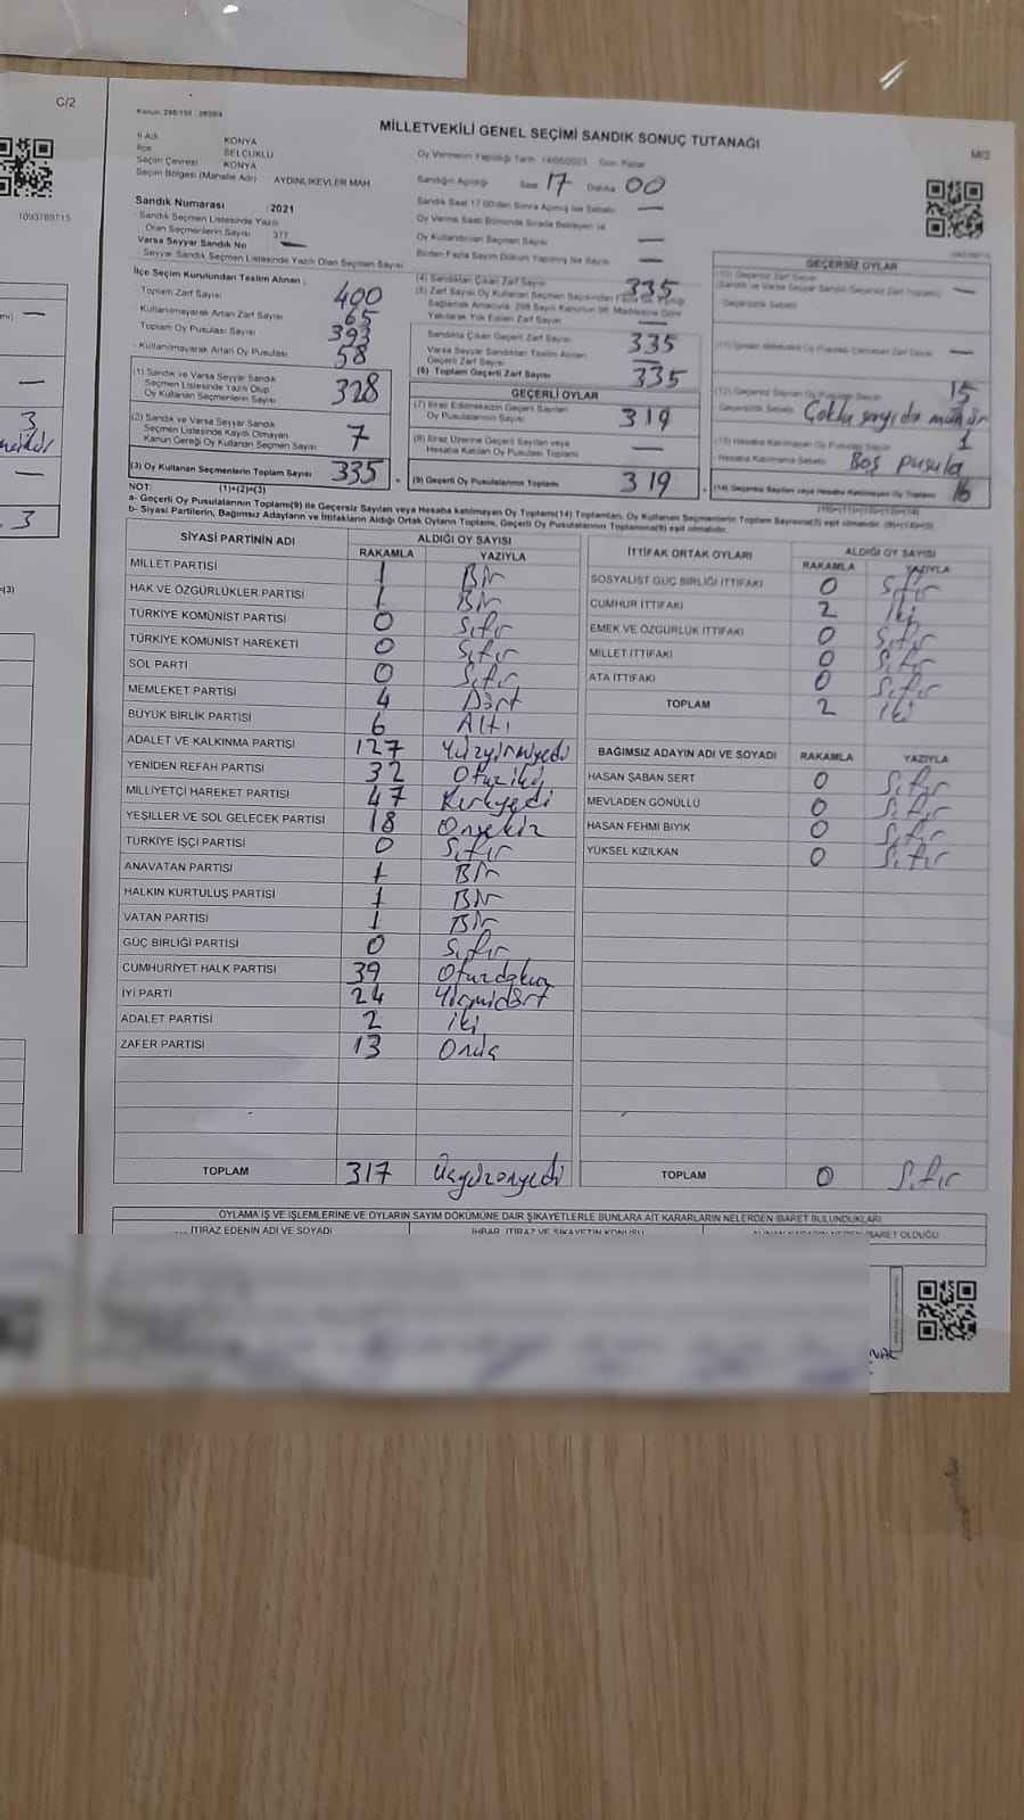 C/2
1093789715
3
3
MİLLETVEKİLİ GENEL SEÇİMİ SANDIK SONUÇ TUTANAĞI
M/2
İl Adı KONYA
İlçe SELÇUKLU
Seçim Çevresi KONYA
Seçim Bölgesi (Mahalle Adı) AYDINLIKEVLER MAH
Sandık Numarası :2021
Sandık Seçmen Listesinde Yazılı
Olan Seçmenlerin Sayısı 377
Varsa Seyyar Sandık No —
Seyyar Sandık Seçmen Listesinde Yazılı Olan Seçmen Sayısı
Oy Vermenin Yapıldığı Tarih 14/05/2023 Gün Pazar
Sandığın Açılışı Saat 17 Dakika 00
İlçe Seçim Kurulundan Teslim Alınan:
Toplam Zarf Sayısı 400
Kullanılmayarak Artan Zarf Sayısı 65
Toplam Oy Pusulası Sayısı 393
Kullanılmayarak Artan Oy Pusulası 58
(1) Sandık ve Varsa Seyyar Sandık
Seçmen Listesinde Yazılı Olup
Oy Kullanan Seçmenlerin Sayısı 328
(2) Sandık ve Varsa Seyyar Sandık
Seçmen Listesinde Kayıtlı Olmayan
Kanun Gereği Oy Kullanan Seçmen Sayısı 7
(3) Oy Kullanan Seçmenlerin Toplam Sayısı 335
(4) Sandıktan Çıkan Zarf Sayısı 335
Sandıkta Çıkan Geçerli Zarf Sayısı 335
Varsa Seyyar Sandıktan Teslim Alınan
Geçerli Zarf Sayısı —
(6) Toplam Geçerli Zarf Sayısı 335
GEÇERLİ OYLAR
(7) İtiraz Edilmeksizin Geçerli Sayılan
Oy Pusulalarının Sayısı 319
(8) İtiraz Üzerine Geçerli Sayılan veya
Hesaba Katılan Oy Pusulası Toplamı —
(9) Geçerli Oy Pusulalarının Toplamı 319
GEÇERSİZ OYLAR
15
Çoklu sayıda mühür
1
Boş pusula
16
NOT: (1)+(2)=(3)
a- Geçerli Oy Pusulalarının Toplamı(9) ile Geçersiz Sayılan veya Hesaba katılmayan Oy Toplamı(14) Toplamları, Oy Kullanan Seçmenlerin Toplam Sayısına(3) eşit olmalıdır.
b- Siyasi Partilerin, Bağımsız Adayların ve İttifakların Aldığı Ortak Oyların Toplamı, Geçerli Oy Pusulalarının Toplamına(9) eşit olmalıdır.
SİYASİ PARTİNİN ADI ALDIĞI OY SAYISI
RAKAMLA YAZIYLA
MİLLET PARTİSİ 1 Bir
HAK VE ÖZGÜRLÜKLER PARTİSİ 1 Bir
TÜRKİYE KOMÜNİST PARTİSİ 0 Sıfır
TÜRKİYE KOMÜNİST HAREKETİ 0 Sıfır
SOL PARTİ 0 Sıfır
MEMLEKET PARTİSİ 4 Dört
BÜYÜK BİRLİK PARTİSİ 6 Altı
ADALET VE KALKINMA PARTİSİ 127 Yüzyirmiyedi
YENİDEN REFAH PARTİSİ 32 Otuziki
MİLLİYETÇİ HAREKET PARTİSİ 47 Kırkyedi
YEŞİLLER VE SOL GELECEK PARTİSİ 18 Onsekiz
TÜRKİYE İŞÇİ PARTİSİ 0 Sıfır
ANAVATAN PARTİSİ 1 Bir
HALKIN KURTULUŞ PARTİSİ 1 Bir
VATAN PARTİSİ 1 Bir
GÜÇ BİRLİĞİ PARTİSİ 0 Sıfır
CUMHURİYET HALK PARTİSİ 39 Otuzdokuz
İYİ PARTİ 24 Yirmidört
ADALET PARTİSİ 2 iki
ZAFER PARTİSİ 13 Onüç
TOPLAM 317 Üçyüzonyedi
İTTİFAK ORTAK OYLARI ALDIĞI OY SAYISI
RAKAMLA YAZIYLA
SOSYALİST GÜÇ BİRLİĞİ İTTİFAKI 0 Sıfır
CUMHUR İTTİFAKI 2 İki
EMEK VE ÖZGÜRLÜK İTTİFAKI 0 Sıfır
MİLLET İTTİFAKI 0 Sıfır
ATA İTTİFAKI 0 Sıfır
TOPLAM 2 iki
BAĞIMSIZ ADAYIN ADI VE SOYADI RAKAMLA YAZIYLA
HASAN ŞABAN SERT 0 Sıfır
MEVLADEN GÖNÜLLÜ 0 Sıfır
HASAN FEHMİ BIYIK 0 Sıfır
YÜKSEL KIZILKAN 0 Sıfır
TOPLAM 0 Sıfır
OYLAMA İŞ VE İŞLEMLERİNE VE OYLARIN SAYIM DÖKÜMÜNE DAİR ŞİKAYETLERLE BUNLARA AİT KARARLARIN NELERDEN İBARET BULUNDUKLARI
İTİRAZ EDENİN ADI VE SOYADI